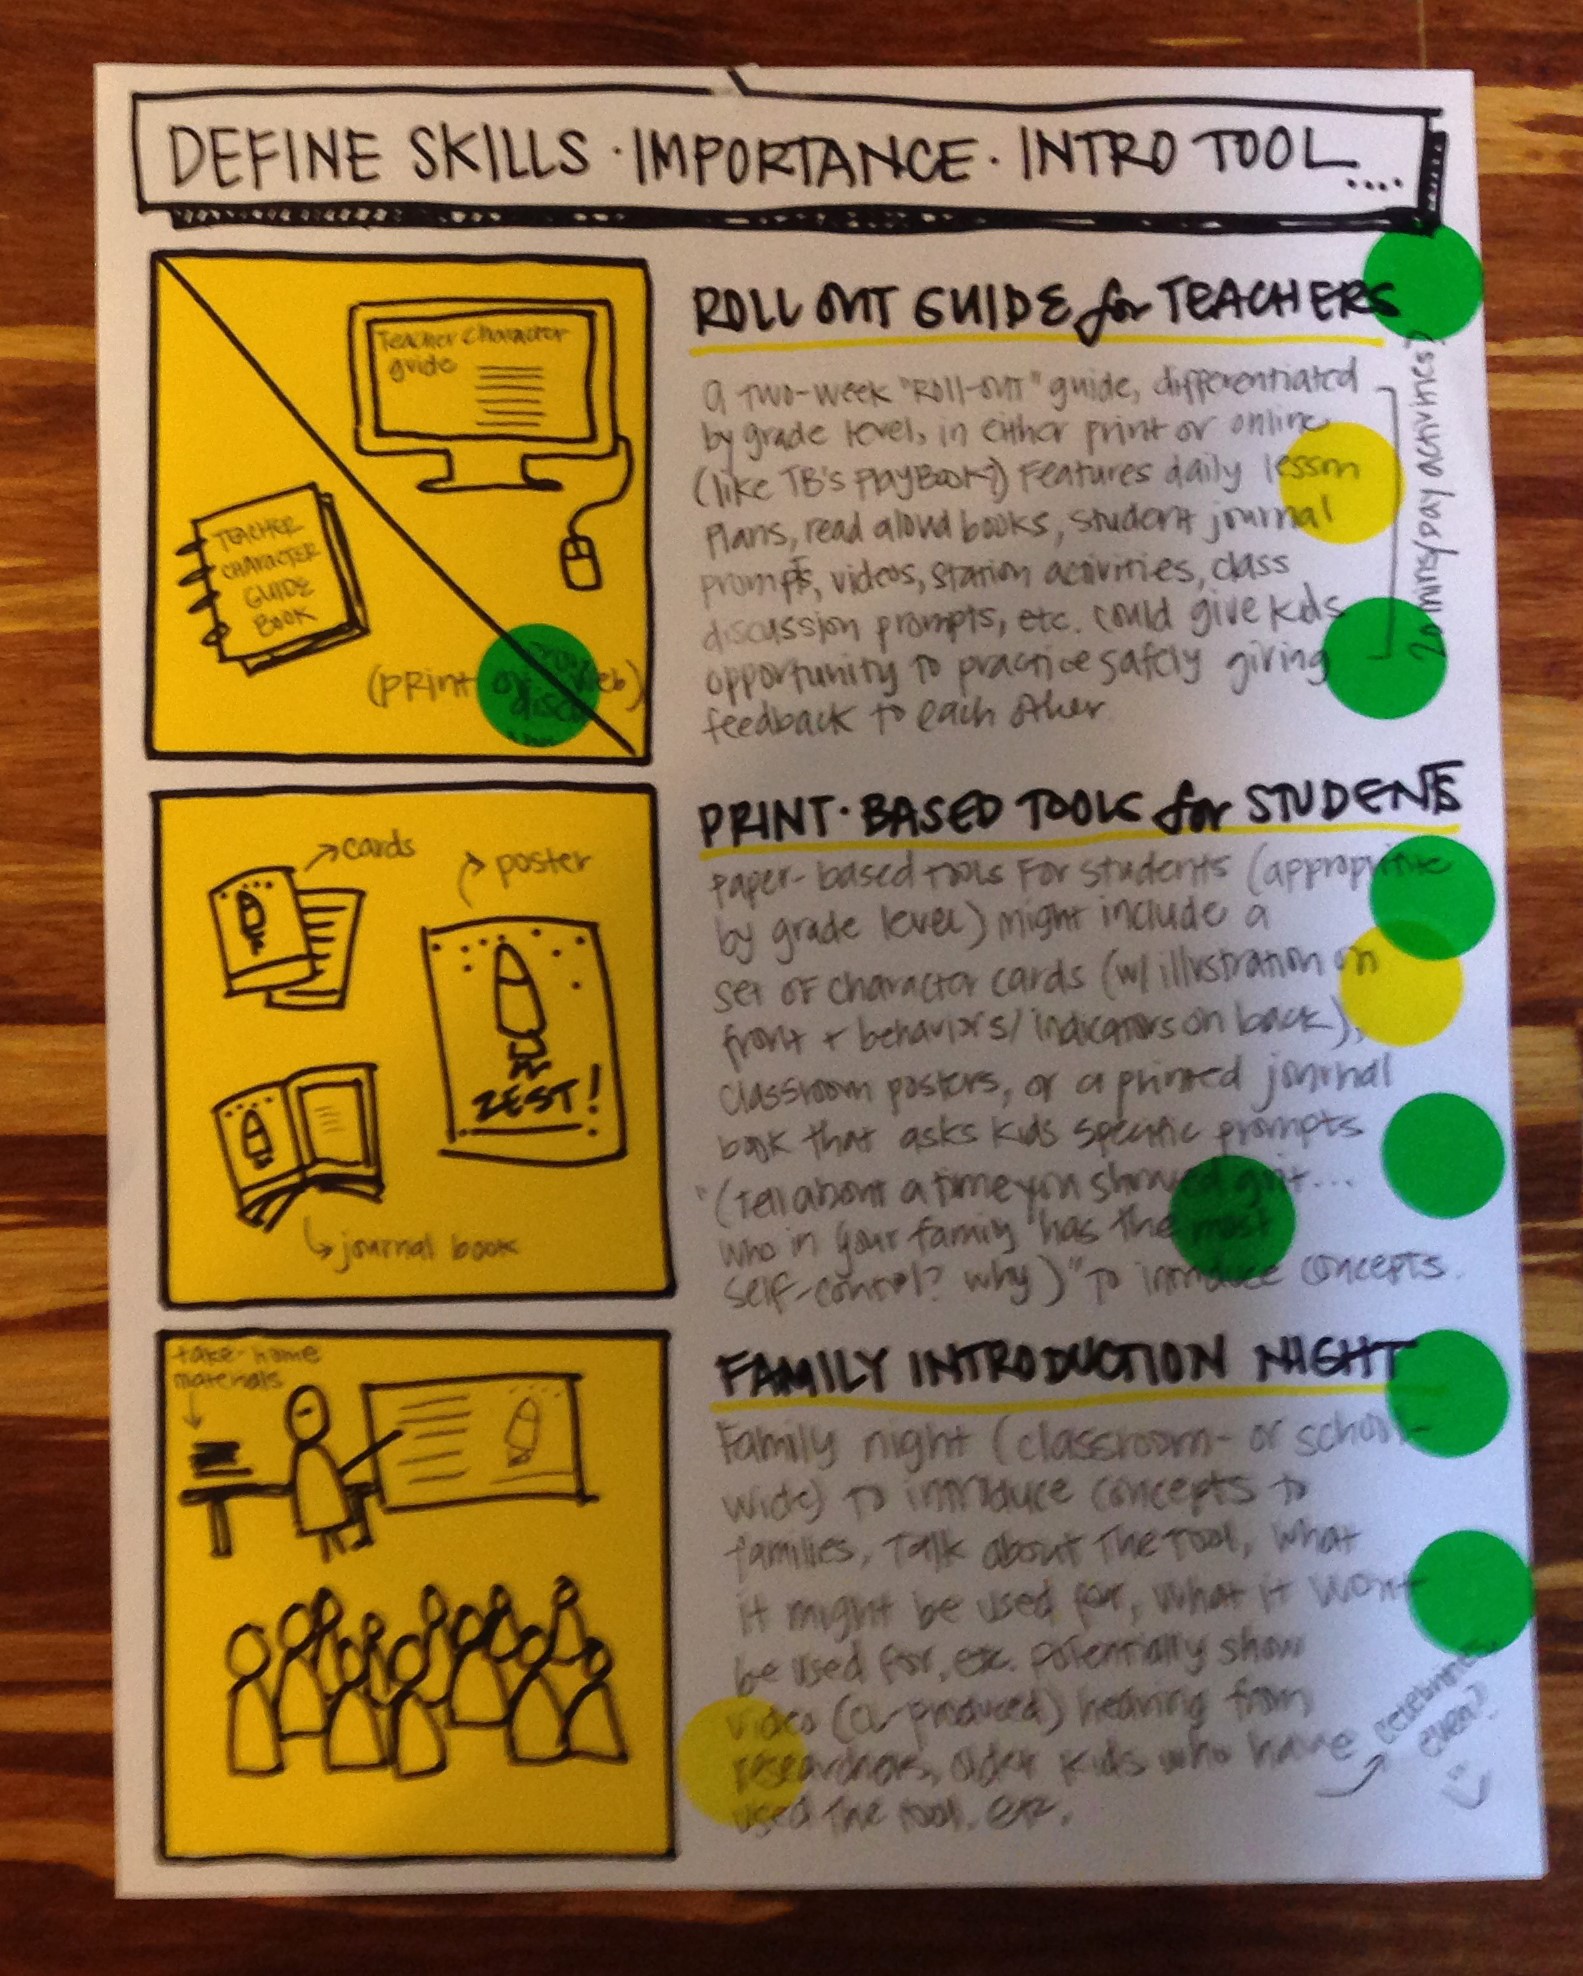 DEFINE SKILLS · IMPORTANCE · INTRO TOOL....
Teacher Character
guide
TEACHER
CHARACTER
GUIDE
BOOK
(print or web)
ROLL OUT GUIDE for TEACHERS
A two-week "Roll-out" guide, differentiated
by grade level, in either print or online
(like TB's PlayBook?) Features daily lesson
plans, read aloud books, student journal
prompts, videos, station activities, class
discussion prompts, etc. could give kids
opportunity to practice safely giving
feedback to each other
20 mins/day activities?
cards
poster
ZEST!
journal book
PRINT·BASED TOOLS for STUDENTS
Paper-based tools for students (appropriate
by grade level) might include a
set of character cards (w/ illustration on
front + behaviors/indicators on back),
classroom posters, or a printed journal
book that asks kids specific prompts
"(Tell about a time you showed grit...
who in your family has the most
self-control? why)" to introduce concepts.
take-home
materials
FAMILY INTRODUCTION NIGHT
Family night (classroom- or school-
wide) to introduce concepts to
families, talk about the tool, what
it might be used for, what it wont
be used for, etc. potentially show
video (CL-produced) hearing from
researchers, older kids who have
used the tool. etc.
celebrities
even?